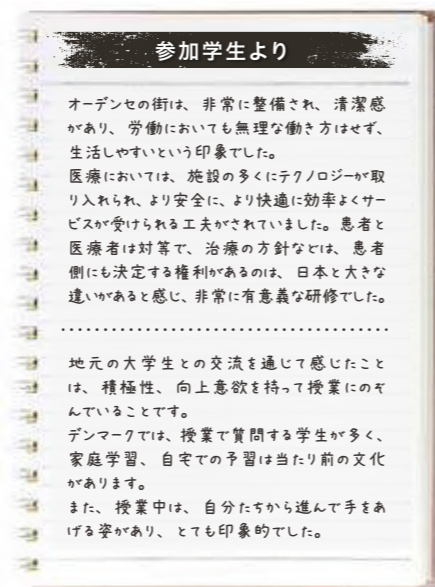 参加学生より
オーデンセの街は、非常に整備され、清潔感
があり、労働においても無理な働き方はせず、
生活しやすいという印象でした。
医療においては、施設の多くにテクノロジーが取
り入れられ、より安全に、より快適に効率よくサー
ビスが受けられる工夫がされていました。患者と
医療者は対等で、治療の方針などは、患者
側にも決定する権利があるのは、日本と大きな
違いがあると感じ、非常に有意義な研修でした。
地元の大学生との交流を通じて感じたこと
は、積極性、向上意欲を持って授業にのぞ
んでいることです。
デンマークでは、授業で質問する学生が多く、
家庭学習、自宅での予習は当たり前の文化
があります。
また、授業中は、自分たちから進んで手をあ
げる姿があり、とても印象的でした。